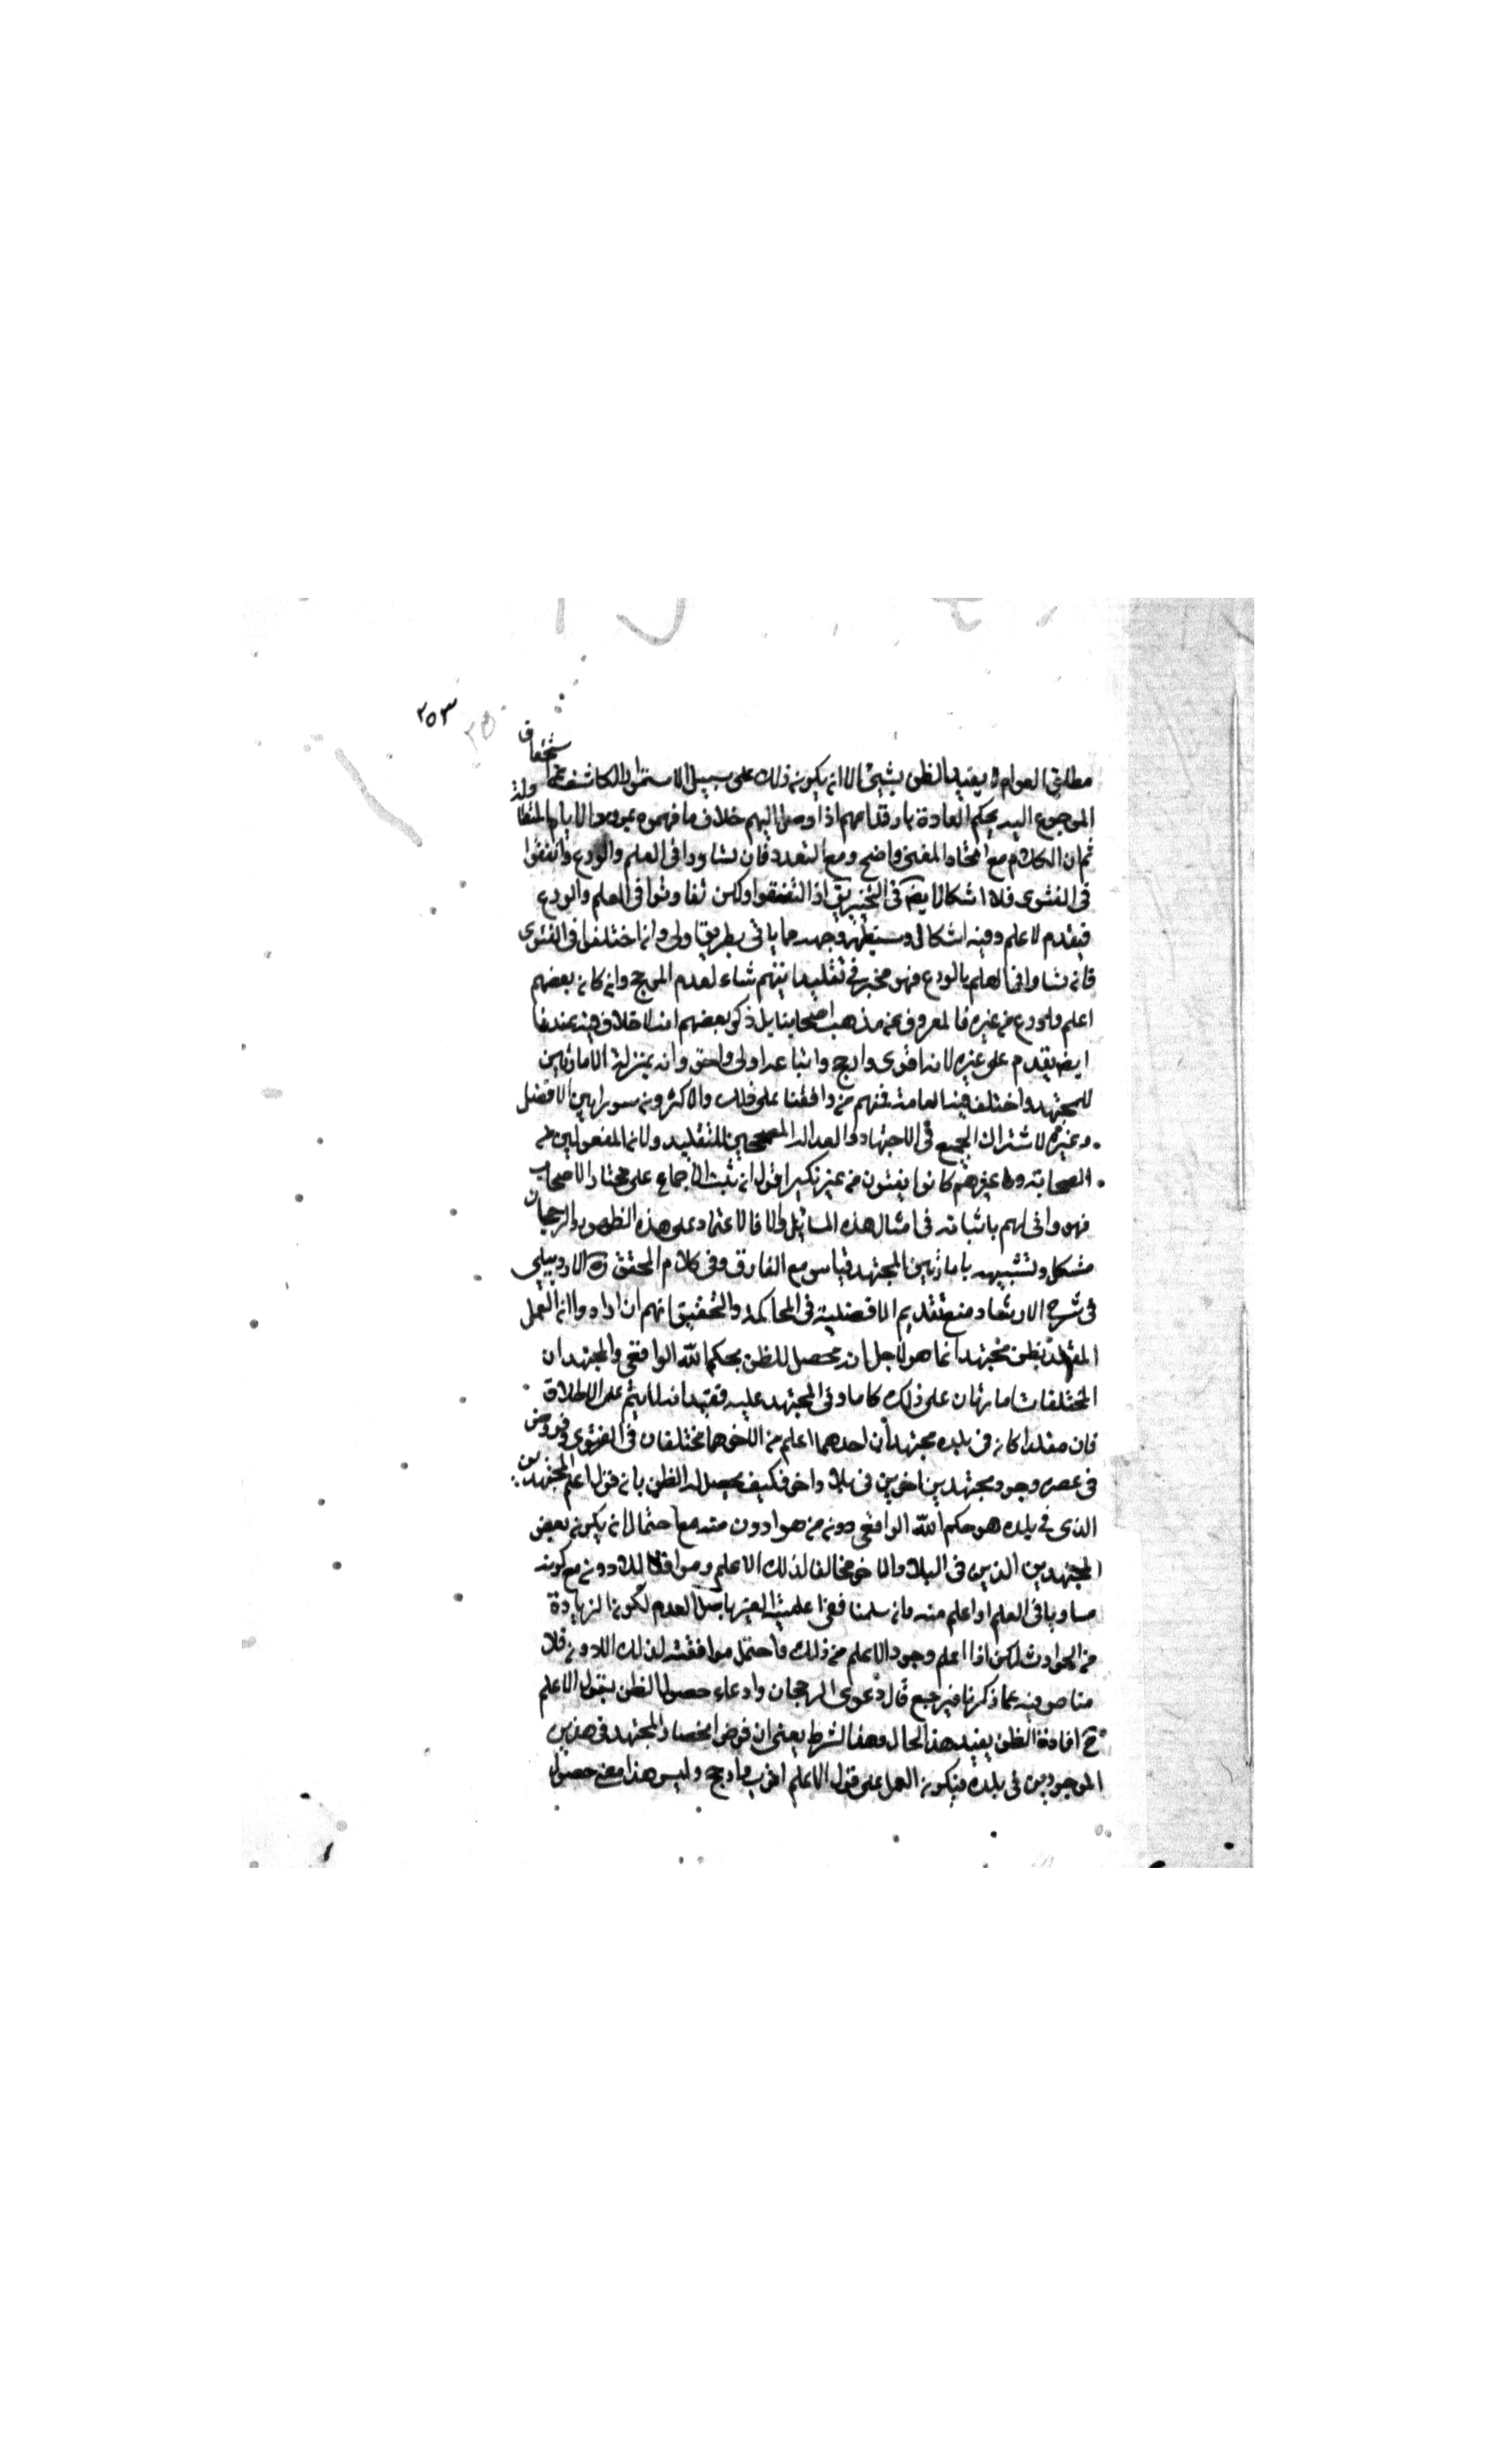 ٢٥٣
مطلق العوام لا يفيد الظن بشيئ الا ان يكون ذلك على سبيل الاستمرار الكاشف عن استحقاق
المرجوع اليه بحكم العادة بل وقلما عهم اذا وصل اليهم خلاف ما فهموه
ثم ان الكلام مع اتحاد المفتى واضح ومع التعدد فان تساووا فى العلم والورع واتفقوا
فى الفتوى فلا اشكال ايضا فى التخيير اذا اتفقوا ولكن تفاوتوا فى العلم والورع
فيقدم الاعلم وفيه اشكال وسيظهر وجهه مما ياتى بطريق اولى وان اختلفوا فى الفتوى
فان تساوا فى العلم والورع فهو مخير فى تقليد ايتهم شاء لعدم المرجح وان كان بعضهم
اعلم واورع من غيره فالمعروف من مذهب اصحابنا بل ذكر بعضهم انه لا خلاف فيه عندنا
ايضا يقدم على غيره لانه اقوى وارجح واتباعه اولى واحق وانه بمنزلة الامارتين
للمجتهد واختلف فيه العامة فمنهم من وافقنا على ذلك والاكثرون سووا بين الافضل
وغيره لاشتراك الجميع فى الاجتهاد والعدالة المصححين للتقليد ولان المفضولين من
الصحابة وغيرهم كانوا يفتون من غير نكير اقول ان ثبت الاجماع على مختار الاصحاب
فهو وانى لهم باثباته فى امثال هذه المسائل والا فالاعتماد على هذه الظهور والرجحان
مشكل وتشبيهه بامارتين المجتهد قياس مع الفارق وفى كلام المحقق الاردبيلى
فى شرح الارشاد منع تقديم الافضلية فى المحاكمة والتحقيق انهم ان ارادوا ان العمل
المقلد بظن مجتهد انما هو لاجل انه محصل للظن بحكم الله الواقعى والمجتهدان
المختلفان امارتان على ذلك كامارتى المجتهد عليه ففيه انه لا يتم على الاطلاق
فان مقلدا كان فى بلده مجتهدان احدهما اعلم من الاخر وهما مختلفان فى الفتوى وفروض
فى عصره وجود مجتهدين اخرين فى بلاد اخر فكيف يحصل له الظن بان قول اعلم المجتهدين
الذى فى بلده هو حكم الله الواقعى دون من هو ادون منه مع احتمال ان يكون بعض
المجتهدين الذين فى البلاد الاخر مخالفا لذلك الاعلم وموافقا للادون مع كونه
مساويا فى العلم او اعلم منه وان سلمنا نفى اعلمية الغير باصل العدم لكون الزيادة
من الحوادث لكن اذا علم وجود الاعلم من ذلك واحتمل موافقته لذلك الادون فلا
مناص فيه عما ذكرنا فيرجع قال دعوى الرجحان وادعاء حصول الظن بقول الاعلم
ح افادة الظن يفيد هذا الحال وهذا الشرط يعنى ان فرض انحصار المجتهد فى هذين
الموجودين فى بلده فيكون العمل على قول الاعلم اقرب وارجح وليس هذا معنى حصول